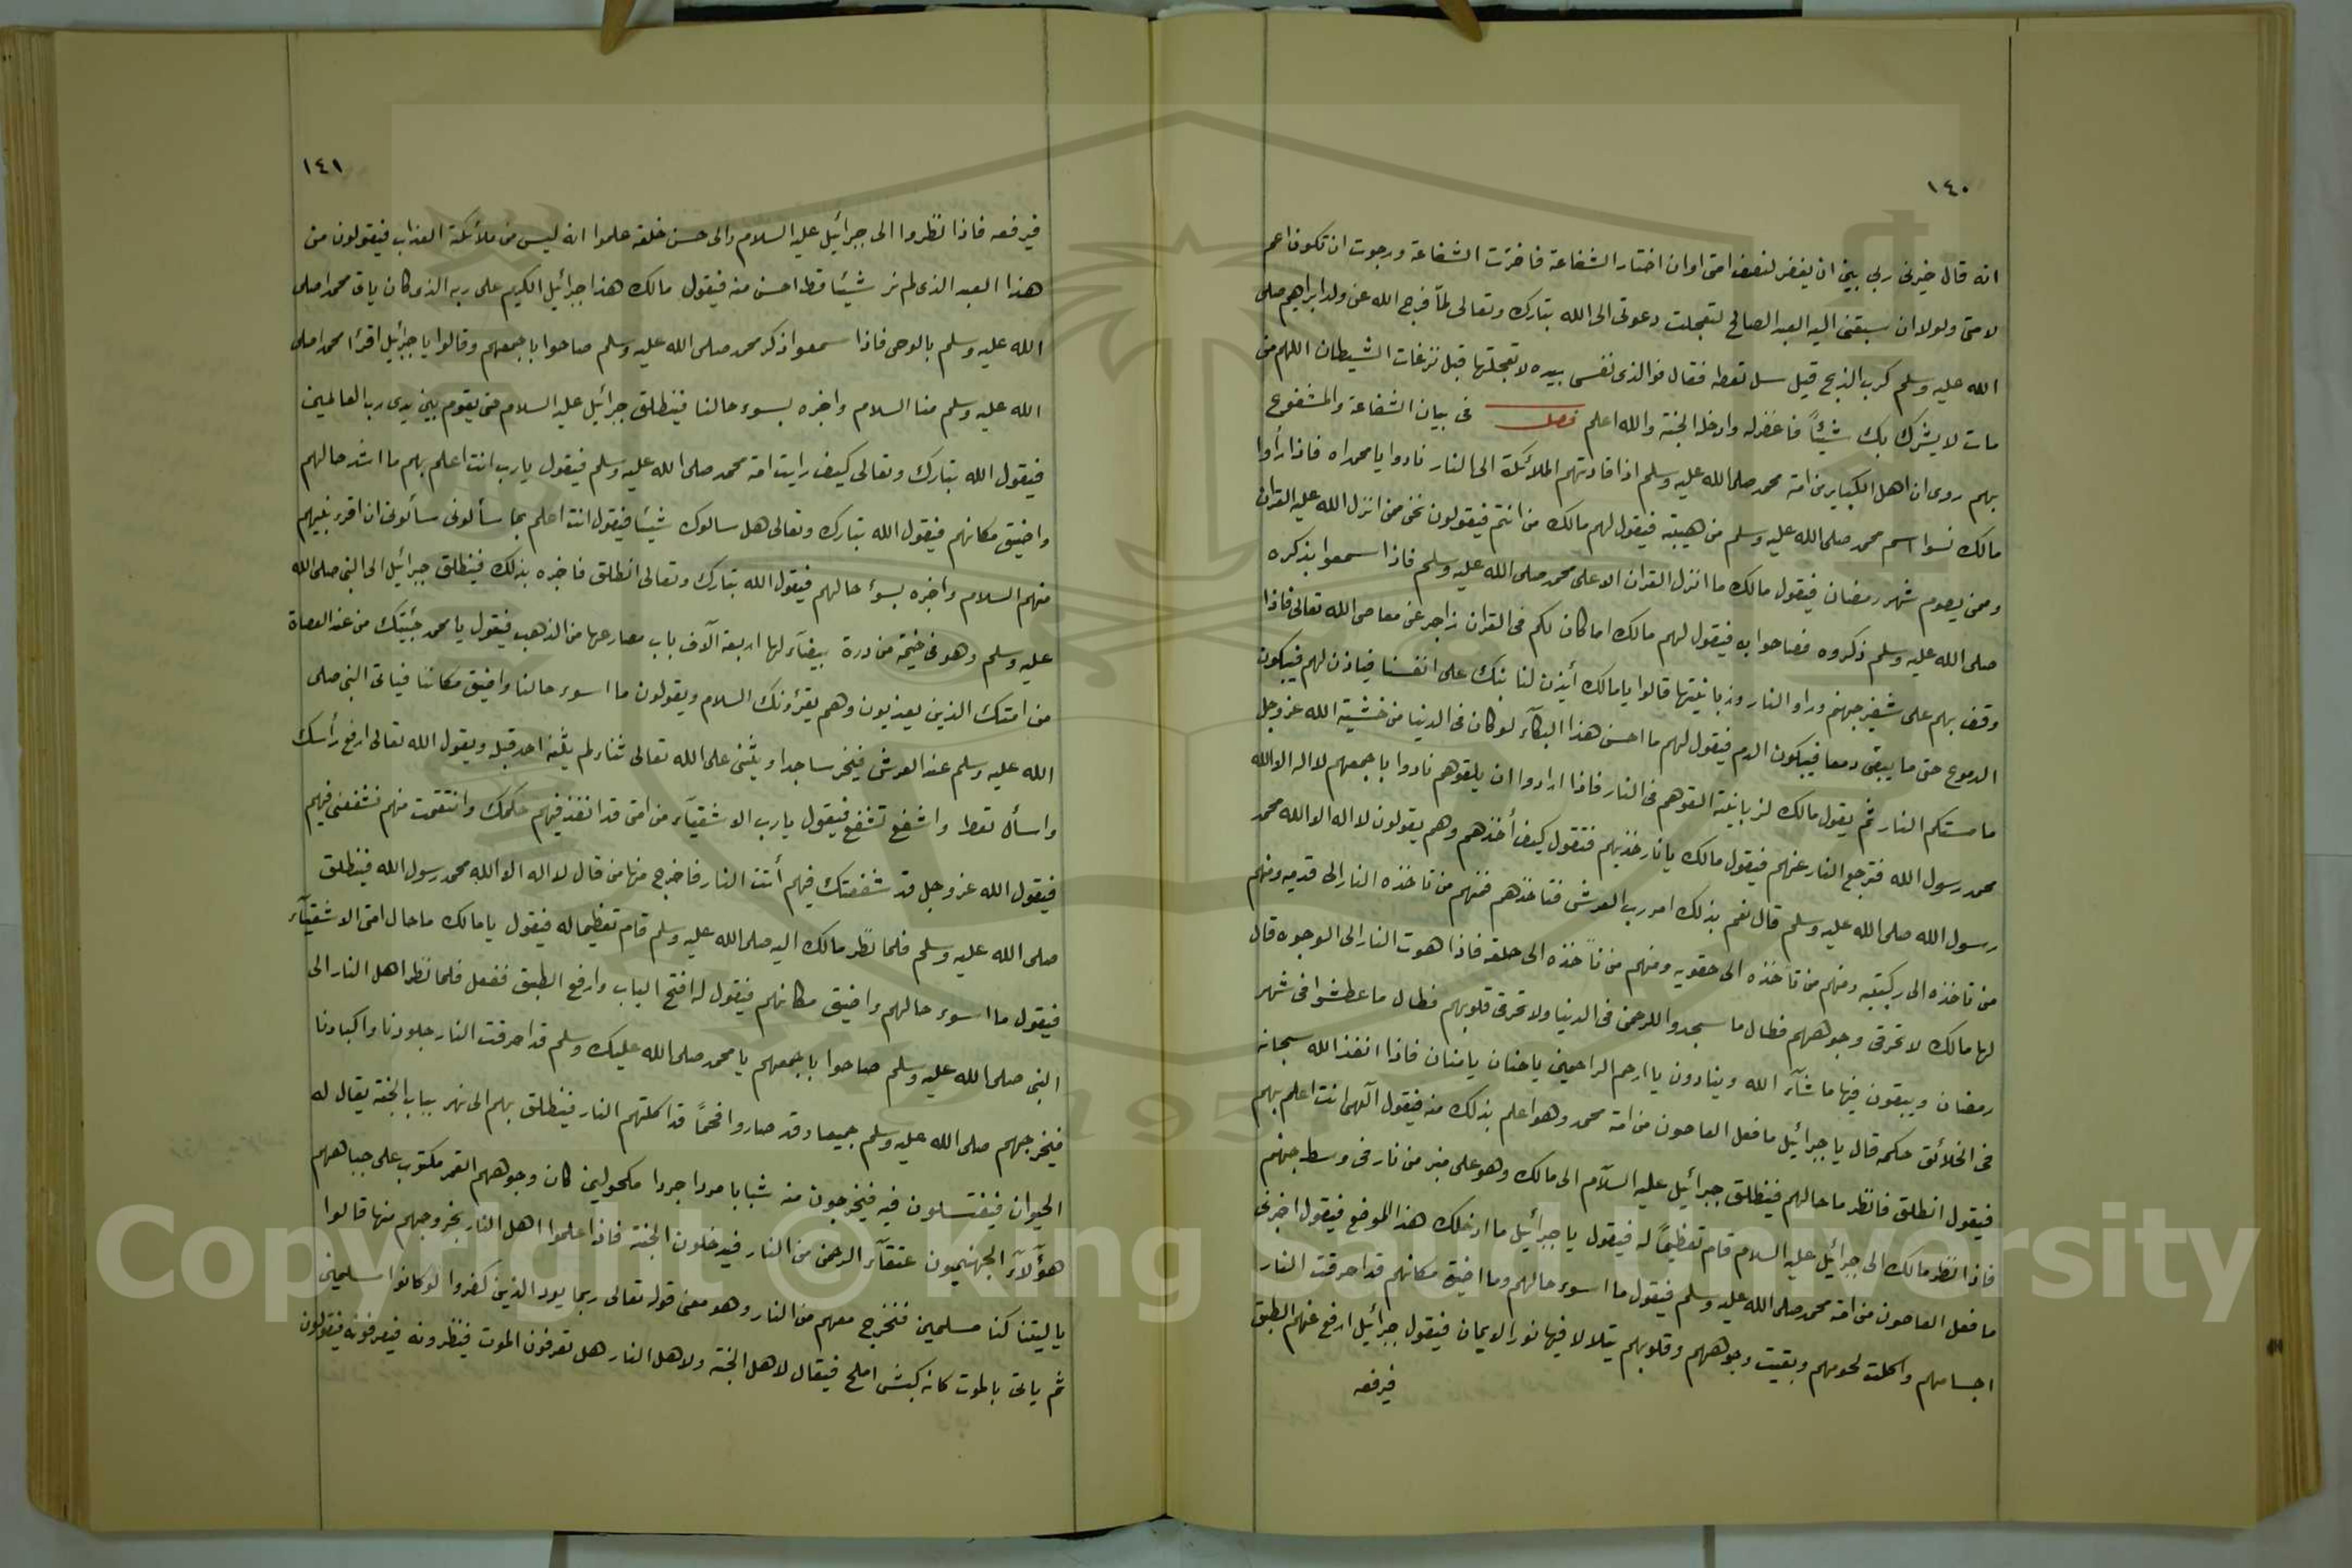 ١٤٠
انه قال خيرنى ربى بين ان يغفر لنصف امتى او ان اختار الشفاعة فاخترت الشفاعة ورجوت ان تكون اعم
لامتى ولولا ان سبقنى اليه العبد الصالح لتعجلت دعوتى الى الله تبارك وتعالى لمّا فرج الله عن ولد ابراهيم صلى
الله عليه وسلم كرب الذبح قيل سل تعطه فقال فوالذى نفسى بيده لا تعجلتها قبل نزغات الشيطان اللهم من
مات لا يشرك بك شيئاً فاغفر له وادخله الجنة والله اعلم فصل فى بيان الشفاعة والمشفوع
بهم روى ان اهل الكباير من امة محمد صلى الله عليه وسلم اذا قادتهم الملائكة الى النار نادوا يا محمداه فاذا رأوا
مالك نسوا اسم محمد صلى الله عليه وسلم من هيبته فيقول لهم مالك من انتم فيقولون نحن ممن انزل الله عليه القران
وممن يصوم شهر رمضان فيقول مالك ما انزل القران الا على محمد صلى الله عليه وسلم فاذا سمعوا بذكره
صلى الله عليه وسلم ذكروه فصاحوا به فيقول لهم مالك اما كان لكم فى القران زاجر عن معاصى الله تعالى فاذا
وقف بهم على شفير جهنم وراو النار وزبانيتها قالوا يا مالك أيذن لنا نبك على انفسنا فياذن لهم فيبكون
الدموع حتى ما يبقى دمعا فيبكون الدم فيقول لهم ما احسن هذا البكآء لو كان فى الدنيا من خشية الله عز وجل
ما مستكم النار ثم يقول مالك لزبانية القوهم فى النار فاذا ارادوا ان يلقوهم نادوا باجمعهم لا اله الا الله
محمد رسول الله فترجع النار عنهم فيقول مالك يا نار خذيهم فتقول كيف أخذهم وهم يقولون لا اله الا الله محمد
رسول الله صلى الله عليه وسلم قال نعم بذلك امر رب العرش فتاخذهم فمنهم من تاخذه النار الى قدميه ومنهم
من تاخذه الى ركبتيه ومنهم من تأخذه الى حقويه ومنهم من تأخذه الى حلقه فاذا هوت النار الى الوجوه قال
لها مالك لا تحرقى وجوههم فطال ما سجدوا للرحمن فى الدنيا ولا تحرقى قلوبهم فطال ما عطشوا فى شهر
رمضان ويبقون فيها ما شآء الله وينادون يا ارحم الراحمين يا حنان يا منان فاذا انفذ الله سبحانه
فى الخلائق حكمه قال يا جبرائيل ما فعل العاصون من امة محمد وهو اعلم بذلك منه فيقول آلهى انت اعلم بهم
فيقول انطلق فانظر ما حالهم فينطلق جبرائيل عليه السلآم الى مالك وهو على منبر من نار فى وسط جهنم
فاذا نظر مالك الى جبرائيل عليه السلام قام تعظيماً له فيقول يا جبرائيل ما ادخلك هذا الموضع فيقول اخبرنى
ما فعل العاصون من امة محمد صلى الله عليه وسلم فيقول ما اسوء حالهم وما اضيق مكانهم قد احرقت النار
اجسامهم واكلت لحومهم وبقيت وجوههم وقلوبهم يتلالا فيها نور الايمان فيقول جبرائيل ارفع عنهم الطبق
فيرفعه
١٤١
فيرفعه فاذا نظروا الى جبرائيل عليه السلام والى حسن خلقه علموا انه ليس من ملائكة العذاب فيقولون من
هذا العبد الذى لم نر شيئا قط احسن منه فيقول مالك هذا جبرائيل الكريم على ربه الذى كان ياتى محمدا صلى
الله عليه وسلم بالوحى فاذا سمعوا ذكر محمد صلى الله عليه وسلم صاحوا باجمعهم وقالوا يا جبرائيل اقرأ محمدا صلى
الله عليه وسلم منا السلام واخبره بسوء حالنا فينطلق جبرائيل عليه السلام حتى يقوم بين يدى رب العالمين
فيقول الله تبارك وتعالى كيف رايت امة محمد صلى الله عليه وسلم فيقول يا رب انت اعلم بهم ما اشد حالهم
واضيق مكانهم فيقول الله تبارك وتعالى هل سالوك شيئا فيقول انت اعلم بما سألونى سألونى ان اقرء نبيهم
منهم السلام واخبره بسؤ حالهم فيقول الله تبارك وتعالى انطلق فاخبره بذلك فينطلق جبرائيل الى النبى صلى الله
عليه وسلم وهو فى خيمة من درة بيضآء لها اربعة آلآف باب مصارعها من الذهب فيقول يا محمد جئيتك من عند العصاة
من امتك الذين يعذبون وهم يقرؤنك السلام ويقولون ما اسوء حالنا واضيق مكاننا فياتى النبى صلى
الله عليه وسلم عند العرش فيخر ساجدا ويثنى على الله تعالى ثناء لم يثنه احد قبله ويقول الله تعالى ارفع رأسك
واسأل تعط واشفع تشفع فيقول يا رب الاشقيآء من امتى قد انفذ فيهم حكمك وانتقمت منهم فشفعنى فيهم
فيقول الله عز وجل قد شفعتك فيهم أئت النار فاخرج منها من قال لا اله الا الله محمد رسول الله فينطلق
صلى الله عليه وسلم فلما نظر مالك اليه صلى الله عليه وسلم قام تعظيما له فيقول يا مالك ما حال امتى الاشقيآء
فيقول ما اسوء حالهم واضيق مكانهم فيقول له افتح الباب وارفع الطبق ففعل فلما نظر اهل النار الى
النبى صلى الله عليه وسلم صاحوا باجمعهم يا محمد صلى الله عليك وسلم قد احرقت النار جلودنا واكبادنا
فيخرجهم صلى الله عليه وسلم جميعا وقد صاروا فحماً قد اكلتهم النار فينطلق بهم الى نهر بباب الجنة يقال له
الحيوان فيغتسلون فيه فيخرجون منه شبابا مردا جردا مكحولين كان وجوههم القمر مكتوب على جباههم
هؤلآء الجهنميون عتقآء الرحمن من النار فيدخلون الجنة فاذا علموا اهل النار بخروجهم منها قالوا
يا ليتنا كنا مسلمين فنخرج معهم من النار وهو معنى قوله تعالى ربما يود الذين كفروا لو كانوا مسلمين
ثم ياتى بالموت كانه كبش املح فيقال لاهل الجنة ولاهل النار هل تعرفون الموت فينظرونه فيعرفونه فيقولون
Copyright © King Saud University
1957